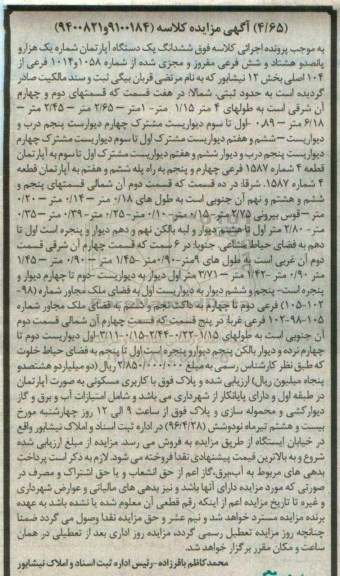 (۴/۶۵) آگهی مزایده کلاسه (۹۱۰۰۱۸۴و۹۴۰۰۸۲۱)
به موجب پرونده اجرائی کلاسه فوق ششدانگ یک دستگاه آپارتمان شماره یک هزار و
پانصدو هشتاد و شش فرعی مفروز و مجزی شده از شماره ۱۰۵۸و ۱۰۱۴ فرعی از
۱۰۴ اصلی بخش ۱۲ نیشابور که به نام مرتضی قربان بیگی ثبت و سند مالکیت صادر
گردیده است به حدود ثبتی. شمالا: در هفت قسمت که قسمتهای دوم و چهارم
آن شرقی است به طولهای ۴ متر ۱/۱۵ متر- ۱متر – ۲/۶۵ متر – ۲/۴۵ متر –
۶/۱۸ متر – ۰/۸۹ -اول تا سوم دیواریست مشترک چهارم دیواریست پنجم درب و
دیواریست –ششم و هفتم دیواریست مشترک اول تا سوم دیواریست مشترک چهارم
دیواریست پنجم درب و دیوار ششم و هفتم دیواریست مشترک اول تا سوم به آپارتمان
قطعه ۴ شماره ۱۵۸۷ فرعی چهارم و پنجم به راه پله ششم و هفتم به آپارتمان قطعه
۴ شماره ۱۵۸۷. شرقا: در ده قسمت که قسمت دوم آن شمالی قسمتهای پنجم و
ششم و هشتم و نهم آن جنوبی است به طول های ۰/۱۸ متر –۰/۱۴ متر – ۰/۲۰
متر –قوس بیرونی ۲/۷۵متر-۰/۱۵ متر-۰/۱۰ متر-۰/۲۵ متر-۰/۳۹ متر-۰/۳۵
متر-۲/۸۰ متر اول تا هشتم دیوار و لبه بالکن نهم و دهم دیوار و پنجره است اول تا
دهم به فضای حیاط مشاعی. جنوبا: در ۶ سمت که قسمت چهارم آن شرقی قسمت
دوم آن غربی است به طول های ۹متر-۰/۹۰متر -۱/۴۵متر –۰/۹۰ متر –۱/۴۵
متر ۰/۹۰ متر-۱/۴۲ متر –۳/۷۱ متر اول دیوار به دیواریست -دوم تا چهارم دیوار و
پنجره است- پنجم و ششم دیوار به دیواریست اول به فضای ملک مجاور شماره (۹۸-
۱۰۲-۱۰۵) فرعی دوم تا چهارم به داکت پنجم و ششم به فضای ملک مجاور شماره
۱۰۵-۹۸-۱۰۲ فرعی غربا: در پنج قسمت که قسمت چهارم آن شمالی قسمت دوم
آن جنوبی است به طولهای ۱/۱۵-۰/۲۲-۲/۴۴-۰/۱۵-۳/۱۱-اول دیواریست دوم تا
چهارم نرده و دیوار بالکن پنجم دیوارو پنجره است اول تا پنجم به فضای حیاط خلوت
که طبق نظر کارشناس رسمی به مبلغ ۲/۸۵۰/۰۰۰/۰۰۰ ریال (دو میلیاردو هشتصدو
پنجاه میلیون ریال) ارزیابی شده و پلاک فوق با کاربری مسکونی به صورت آپارتمان
در طبقه اول و دارای پایانکار از شهرداری می باشد و شامل امتیازات آب و برق و گاز
دیوارکشی و محموله سازی و پلاک فوق از ساعت ۹ الی ۱۲ روز چهارشنبه مورخ
بیست و هشتم تیرماه نودوشش (۹۶/۴/۲۸) در اداره ثبت اسناد و املاک نیشابور واقع
در خیابان ایستگاه از طریق مزایده به فروش می رسد. مزایده از مبلغ ارزیابی شده
شروع و به بالاترین قیمت پیشنهادی نقدا فروخته می شود. لازم به ذکر است پرداخت
بدهی های مربوط به آب،برق،گاز اعم از حق انشعاب و یا حق اشتراک و مصرف در
صورتی که مورد مزایده دارای آنها باشد و نیز بدهی های مالیاتی و عوارض شهرداری
و غیره تا تاریخ مزایده اعم از اینکه رقم قطعی آن معلوم شده یا نشده باشد به عهده
برنده مزایده مسترد خواهد شد و نیم عشر و حق مزایده نقدا وصول می گردد ضمنا
چنانچه روز مزایده تعطیل رسمی گردد، مزایده روز اداری بعد از تعطیلی در همان
ساعت و مکان مقرر برگزار خواهد شد.
محمدکاظم باقرزاده-رئیس اداره ثبت اسناد و املاک نیشابور